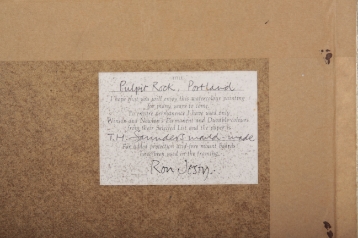 TITLE
Pulpit Rock, Portland
I hope that you will enjoy this watercolour painting
for many years to come.
To ensure permanence I have used only
Winsor and Newton's Permanent and Durable colours
from their Selected List and the paper is
T.H. Saunders mould-made
For added protection acid free mount boards
have been used in the framing.
Ron Jesty.